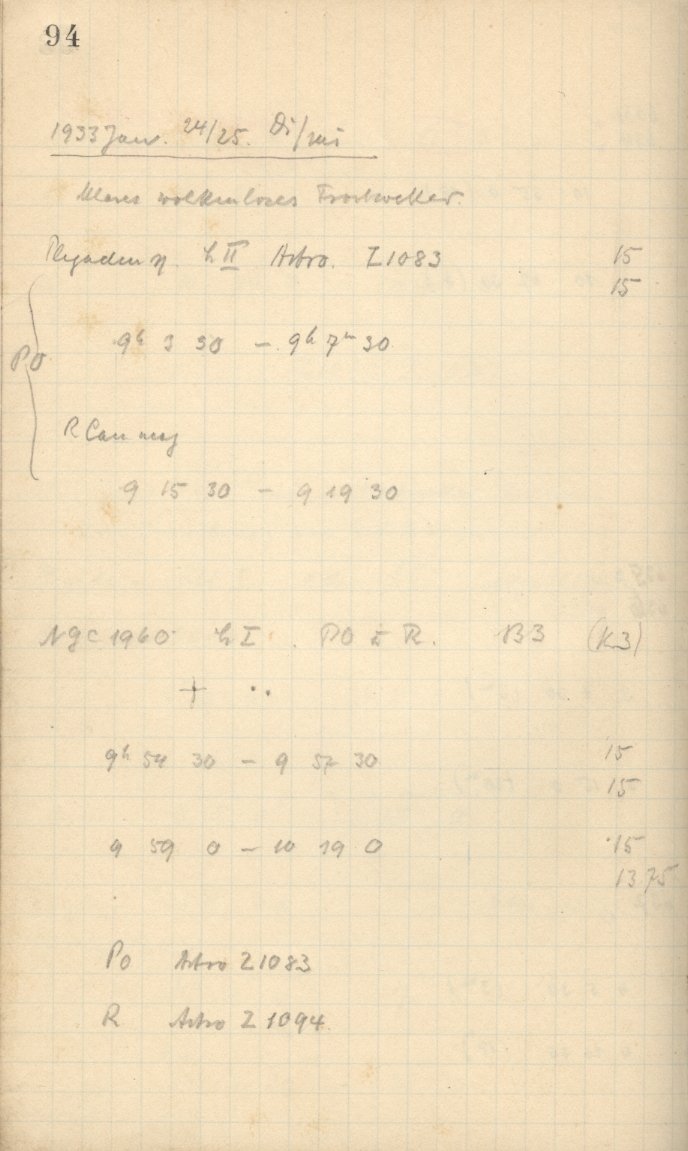 94
1933 Jan. 24/25. Di/Mi
Klares wolkenloses Frostwetter.
Plejaden η. h II Astro. Z1083 15
15
PO 9h 3 30 – 9h 7m 30
R Can maj
9 15 30 – 9 19 30
NGC 1960 h I. PO u R. B3 (K3)
+ ..
9h 54 30 – 9 57 30 15
15
9 59 0 – 10 19 0 15
13 75
PO Astro Z1083
R Astro Z 1094